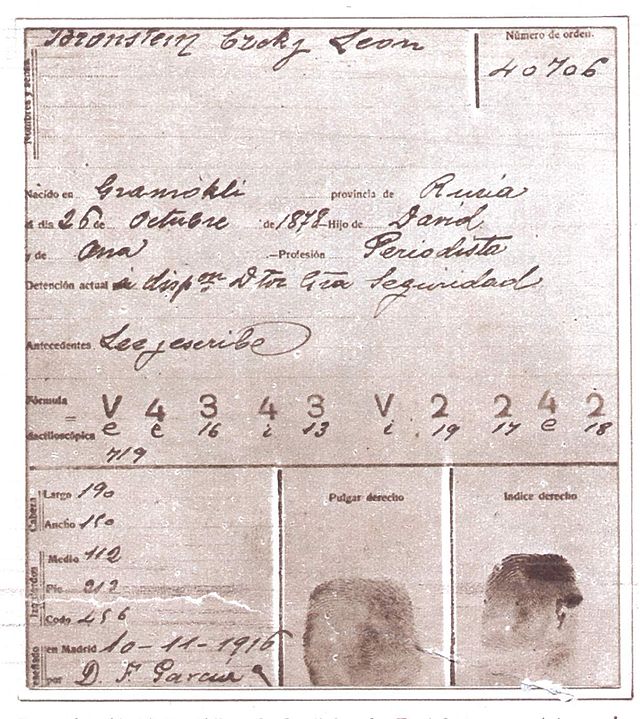 Bronstein Crcky León
Número de orden.
40706
Nombres y señas
Nacido en Gramokli provincia de Rusia
el día 26 de Octubre de 1878–Hijo de David
y de Ana .–Profesión Periodista
Detención actual á dispon Dtor Gra Seguridad
Antecedentes Lee y escribe
Fórmula V 4 3 4 3 V 2 2 4 2
dactiloscópica e e 16 i 13 i 19 17 e 18
719
Cabeza
Largo 190
Ancho 150
Medio 112
Pie 212
Codo 456
Reseñado en Madrid 10-11-1916
por D. F. García
Pulgar derecho
Indice derecho